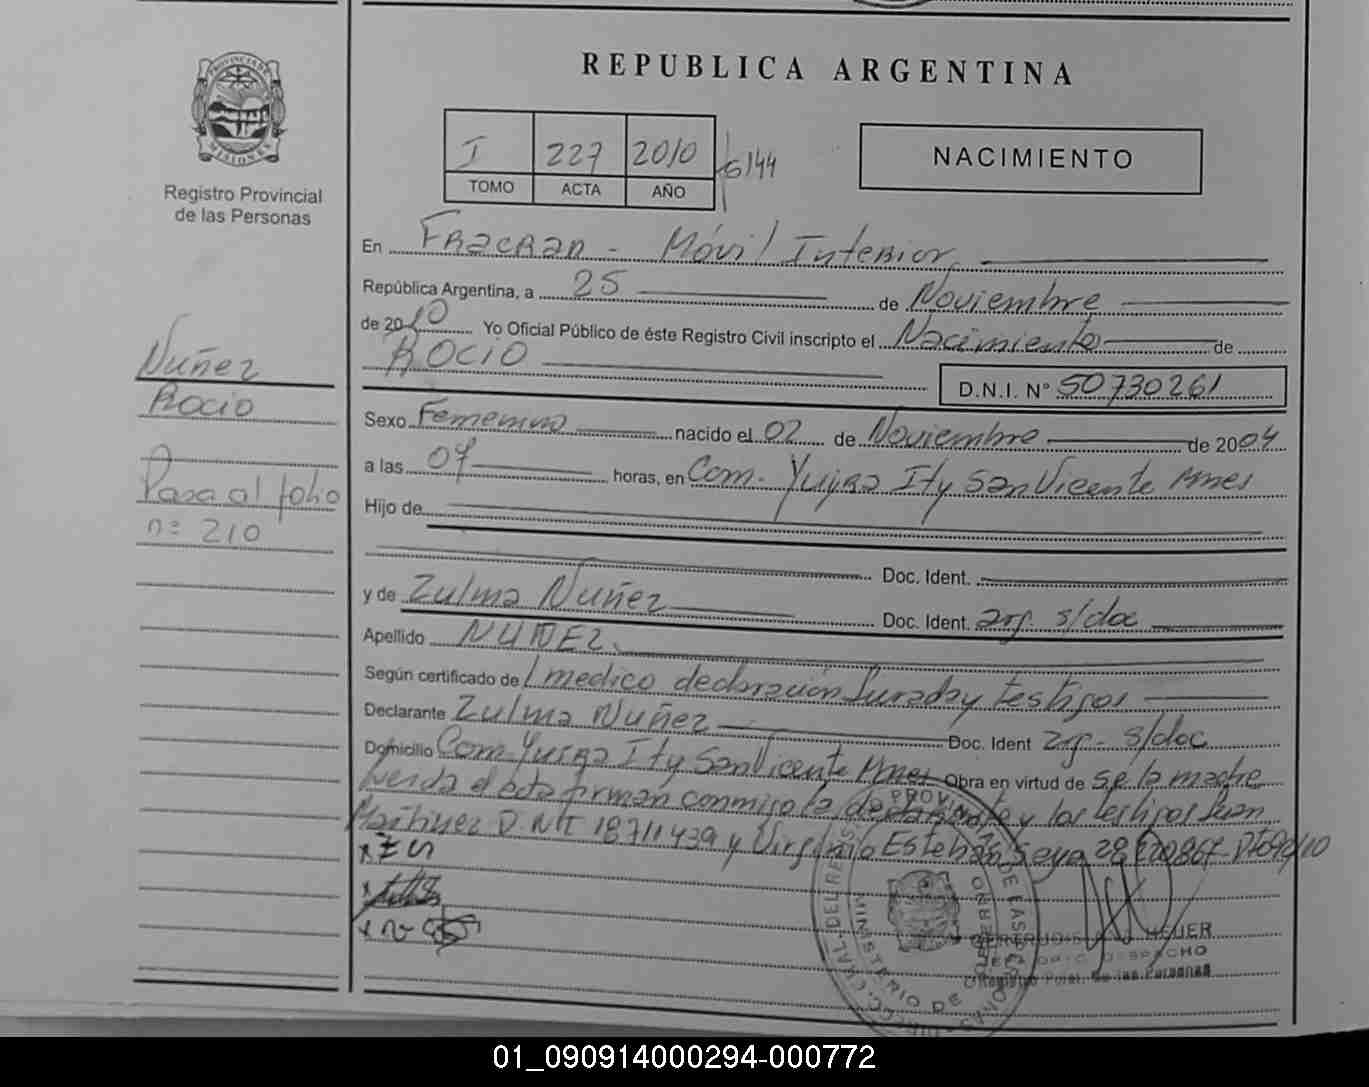 PROVINCIA DE
MISIONES
Registro Provincial
de las Personas
REPUBLICA ARGENTINA
I 227 2010 6/44
TOMO ACTA AÑO
NACIMIENTO
En Fracran - Móvil Interior
República Argentina, a 25 de Noviembre
de 2010 Yo Oficial Público de éste Registro Civil inscripto el Nacimiento de
ROCIO
D.N.I. Nº 50730261
Sexo Femenino nacido el 02 de Noviembre de 2004
a las 07 horas, en Com. Yuiga Ity San Vicente Mnes
Hijo de
Doc. Ident.
y de Zulma Nuñez Doc. Ident. arg. s/doc
Apellido NUÑEZ
Según certificado de / medico declaración Jurada y testigos
Declarante Zulma Nuñez Doc. Ident arg. s/doc
Domicilio Com. Yuiga Ity San Vicente Mnes Obra en virtud de ser la madre
el acta firman conmigo la declarante y los testigos Juan
Martinez D.N.I 18711439 y Virginio Esteban
Nuñez
Rocio
Pasa al folio
nº 210
HEUER
DESPACHO
Registro Pcial. de las Personas
01_090914000294-000772